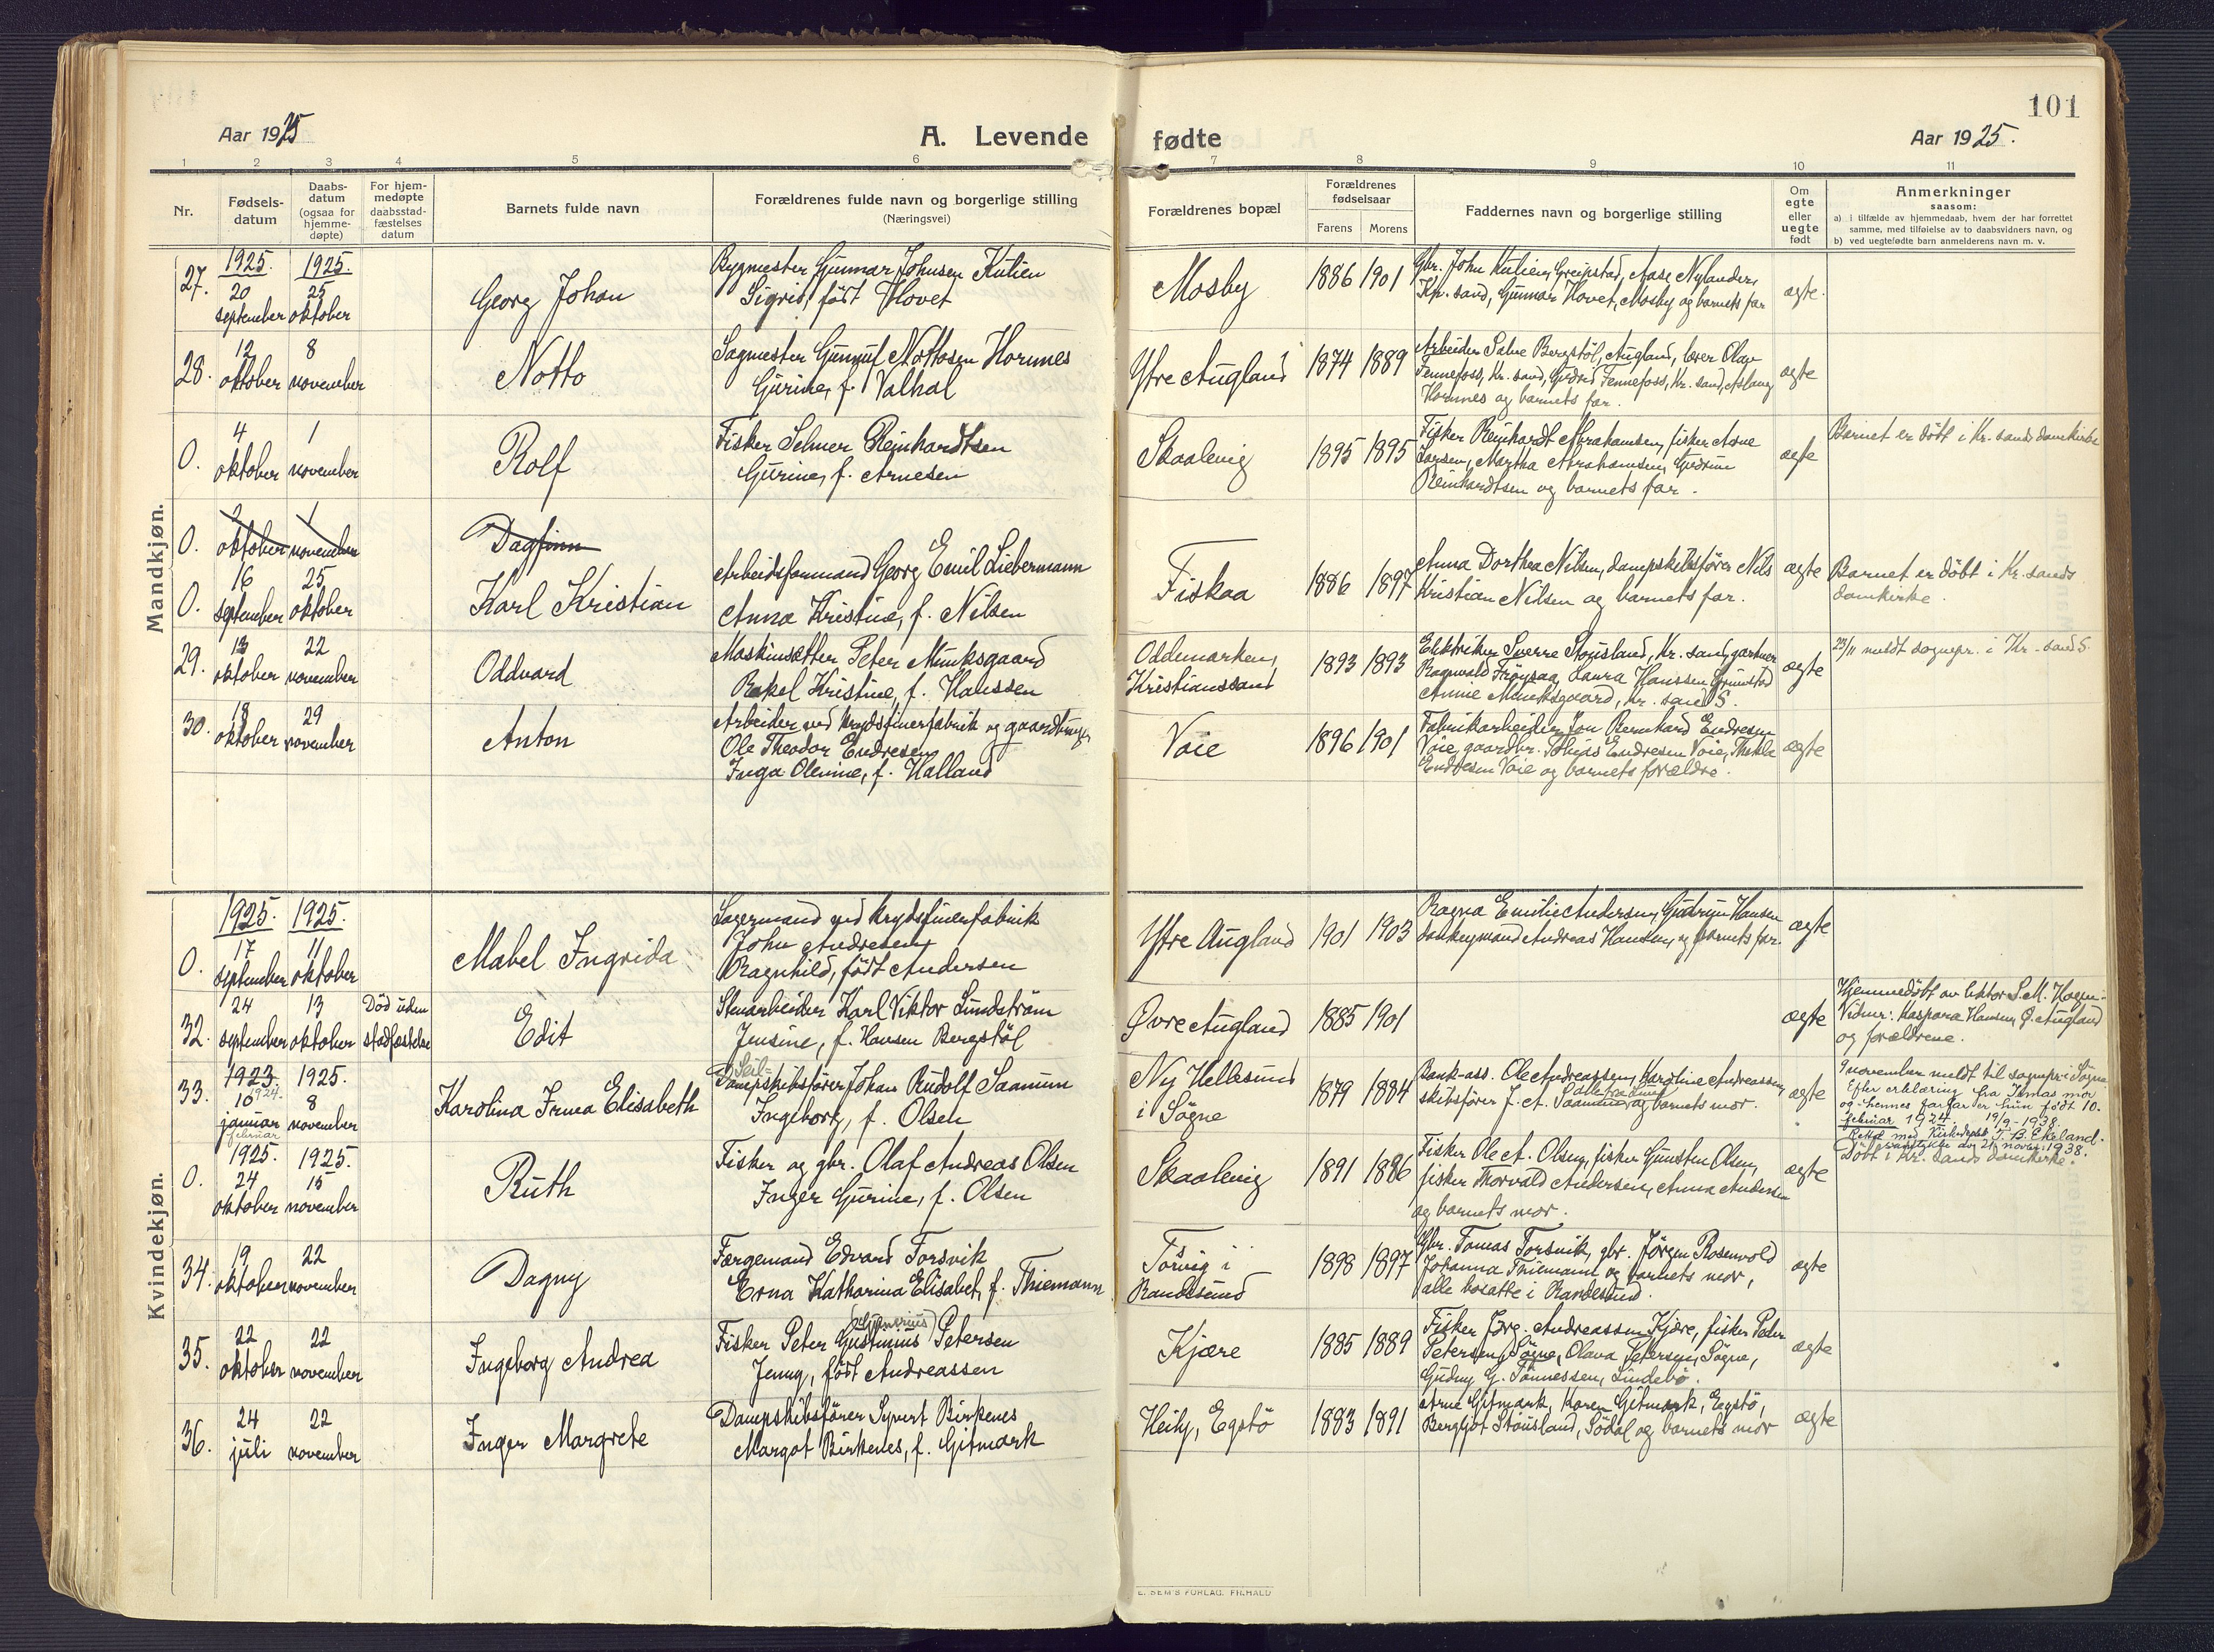 101
Aar 1925
A. Levende
fødte
Aar 1925.
1 2 3 4 5 6 7 8 9 10 11
Nr.
Fødsels-
datum
Daabs-
datum
(ogsaa for
hjemme-
døpte)
For hjem-
medøpte
daabsstad-
fæstelses
datum
Barnets fulde navn
Forældrenes fulde navn og borgerlige stilling
(Næringsvei)
Forældrenes bopæl
Forældrenes
fødselsaar
Farens Morens
Faddernes navn og borgerlige stilling
Om
egte
eller
uegte
født
Anmerkninger
saasom:
a) i tilfælde av hjemmedaab, hvem der har forrettet
samme, med tilføielse av to daabsvidners navn, og
b) ved uegtefødte barn anmelderens navn m. v.
Mandkjøn.
27.
1925.
20
september
1925.
25
oktober
Georg Johan
Bygmester Gunnar Johnsen Kulien
Sigrid, født Hovet
Mosby
1886 1901
Gbr. John Kulien, Greipstad, Aase Nylander,
Kr. sand, Gunnar Hovet, Mosby og barnets far
ægte.
28.
12
oktober
8
november
Notto
Sagmester Gunnuf Nottosen Hornnes
Gurine, f. Valhal
Ytre Augland
1874 1889
Arbeider Salve Bergstøl, Augland, lærer Olav
Fennefoss, Kr. sand, Gudrid Fennefoss, Kr. sand, Aslaug
Hornnes og barnets far.
ægte
0.
4
oktober
1
november
Rolf
Fisker Selmer Reinhardtsen
Gurine, f. Arnesen
Skaalevig
1895 1895
Fisker Reinhardt Abrahamsen, fisker Arne
Larsen, Martha Abrahamsen, Gudrun
Reinhardtsen og barnets far.
ægte
Barnet er døbt i Kr. sands domkirke
0.
2
oktober
1
november
Dagfinn
0.
16
september
25
oktober
Karl Kristian
Arbeidsformand Georg Emil Liebermann
Anna Kristine, f. Nilsen
Fiskaa
1886 1897
Anna Dorthea Nilsen, dampskibsfører Nils
Kristian Nilsen og barnets far.
ægte
Barnet er døbt i Kr. sands
domkirke.
29.
13
oktober
22
november
Oddvard
Maskinsætter Peter Munksgaard
Rakel Kristine, f. Hanssen
Oddemarken,
Kristianssand
1893 1893
Elektriker Sverre Stousland, Kr. sand, gartner
Ragnvald Frøysaa, Laura Hanssen Grimstad
Annie Munksgaard, Kr. sand S.
ægte
23/11 meldt sognepr. i Kr. sand S.
30.
18
oktober
29
november
Anton
Arbeider ved Krydsfinerfabrik og gaardbruger
Ole Theodor Endresen
Inga Olevine, f. Halland
Voie
1896 1901
Fabrikarbeider Jon Bernhard Endresen
Voie, gaardbr. Tobias Endresen Voie, Thekla
Endresen Voie og barnets forældre.
ægte
Kvindekjøn.
0.
1925.
17
september
1925.
11
oktober
Mabel Ingrida
Lagermand ved Krydsfinerfabrik
John Andresen
Ragnhild, født Andersen
Ytre Augland
1901 1903
Ragna Emilie Andersen, Gudrun Hansen
donkeymand Andreas Hansen, og barnets far.
ægte
32.
24
september
13
oktober
Død uden
stadfæstelse
Edit
Stenarbeider Karl Viktor Lundstrøm
Jensine, f. Hansen Bergstøl
Øvre Augland
1885 1901
ægte
Hjemmedøbt av lektor S. M. Hagen.
Vidner: Kaspara Hansen, Ø. Augland
og forældrene.
33.
1923.
1924.
10
januar
februar
1925.
8
november
Karolina Irma Elisabeth
Seil-
Dampskibsfører Johan Rudolf Saanum
Ingeborg, f. Olsen
Ny Hellesund
i Søgne
1879 1884
Bank-ass. Ole Andreassen, Karoline Andreassen,
skibsfører J. A. Saanum, og barnets mor.
ægte
9 november meldt til sognepr. i Søgne
Efter erklæring fra Irmas mor
og hennes farfar er hun født 10.
februar 1924. 19/9 - 1938.
Rettet med Kirkedepts T. B. Ekeland.
samtykke av 21. novbr. 1938.
0.
1925.
24
oktober
1925.
15
november
Ruth
Fisker og gbr. Olaf Andreas Olsen
Inger Gurine, f. Olsen
Skaalevig
1891 1886
Fisker Ole A. Olsen, fisker Gunsten Olsen,
fisker Thorvald Andersen, Anna Andersen
og barnets mor.
ægte
Døbt i Kr. sands domkirke.
34.
19
oktober
22
november
Dagny
Færgemand Edvard Torsvik
Erna Katharina Elisabet, f. Thiemann
Torvig i
Randesund
1898 1897
Gbr. Tomas Torsvik, gbr. Jørgen Rosenvold
Johanna Thiemann og barnets mor,
alle bosatte i Randesund.
ægte
35.
22
oktober
22
november
Ingeborg Andrea
Fisker Peter Gustinius Petersen
Jenny, født Andreassen
Kjære
1885 1889
Fisker Jørg. Andreassen Kjære, fisker Peder
Petersen, Søgne, Olava Petersen, Søgne,
Gudny G. Tønnessen, Lindebø.
ægte
36.
24
juli
22
november
Inger Margrete
Dampskibsfører Syvert Birkenes
Margot Birkenes, f. Gitmark
Egstø
1883 1891
Arne Gitmark, Karen Gitmark, Egstø,
Bergljot Stousland, Sødal og barnets mor
ægte